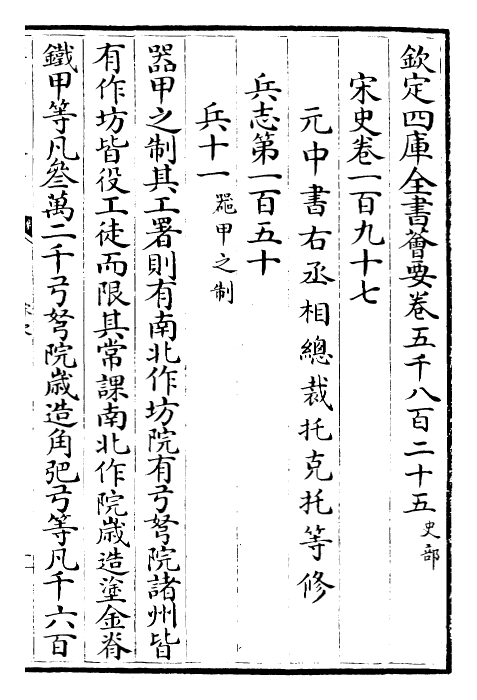 欽定四庫全書薈要卷五千八百二十五 史部
宋史卷一百九十七
元中書右丞相總裁托克托等修
兵志第一百五十
兵十一 噐甲之制
噐甲之制其工署則有南北作坊院有弓弩院諸州皆
有作坊皆役工徒而限其常課南北作院歲造塗金脊
鐵甲等凡叄萬二千弓弩院歲造角弝弓等凡千六百